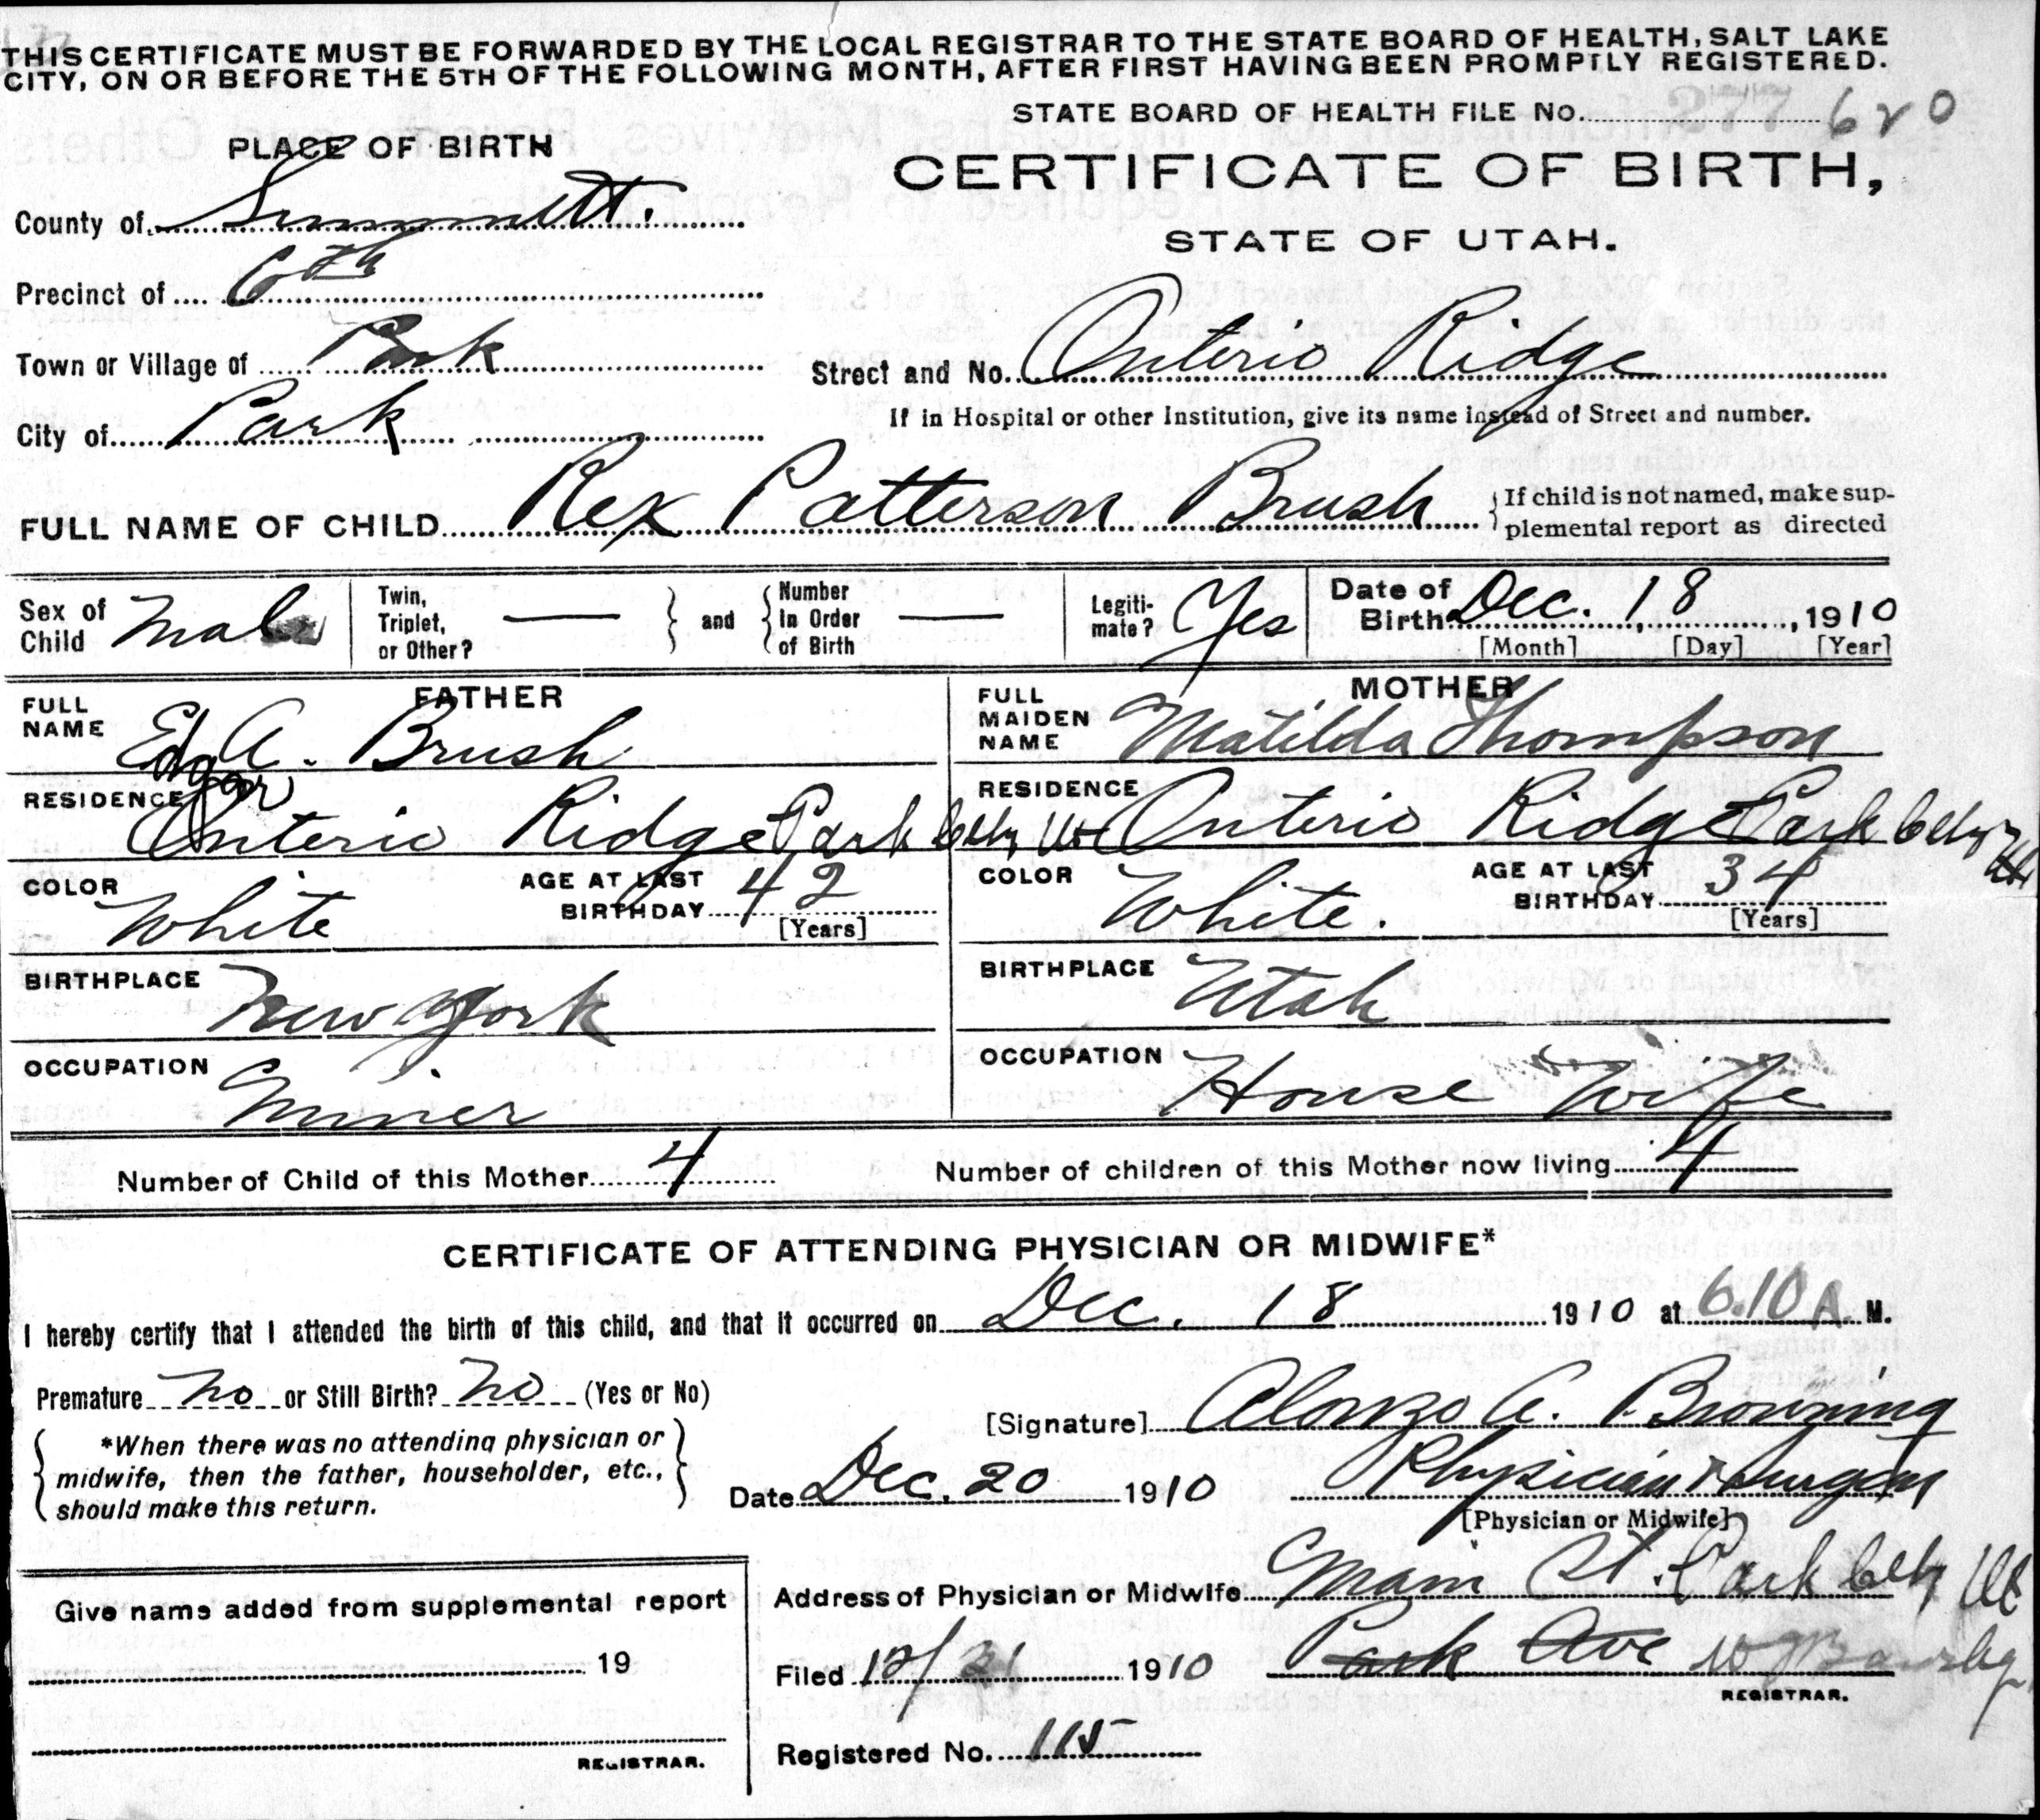 THIS CERTIFICATE MUST BE FORWARDED BY THE LOCAL REGISTRAR TO THE STATE BOARD OF HEALTH, SALT LAKE
CITY, ON OR BEFORE THE 5TH OF THE FOLLOWING MONTH, AFTER FIRST HAVING BEEN PROMPTLY REGISTERED.
STATE BOARD OF HEALTH FILE No. 277 620
PLACE OF BIRTH
CERTIFICATE OF BIRTH,
STATE OF UTAH.
County of Summitt.
Precinct of 6th
Town or Village of Park
Street and No. Onterio Ridge
If in Hospital or other Institution, give its name instead of Street and number.
City of Park
FULL NAME OF CHILD Rex Patterson Brush
{If child is not named, make sup-
plemental report as directed
Sex of Child Male
Twin, Triplet, or Other? — } and { Number in Order of Birth —
Legiti-mate? Yes
Date of Birth Dec. 18, 1910
[Month] [Day] [Year]
FATHER
FULL NAME Ed A. Brush
Edgar
RESIDENCE Onterio Ridge Park City Ut
COLOR White
AGE AT LAST BIRTHDAY 42
[Years]
BIRTHPLACE New York
OCCUPATION Miner
MOTHER
FULL MAIDEN NAME Matilda Thompson
RESIDENCE Onterio Ridge Park City Ut
COLOR White.
AGE AT LAST BIRTHDAY 34
[Years]
BIRTHPLACE Utah
OCCUPATION House Wife
Number of Child of this Mother 4
Number of children of this Mother now living 4
CERTIFICATE OF ATTENDING PHYSICIAN OR MIDWIFE*
I hereby certify that I attended the birth of this child, and that it occurred on Dec. 18 1910 at 6.10 A. M.
Premature no or Still Birth? no (Yes or No)
[Signature] Alonzo C. Browning
{ *When there was no attending physician or
midwife, then the father, householder, etc.,
should make this return. }
Date Dec. 20 1910
Physician & Surgeon
[Physician or Midwife]
Address of Physician or Midwife Main St. Park City Ut
Give name added from supplemental report
19
REGISTRAR.
Filed 12/31 1910
Park Ave
REGISTRAR.
Registered No. 115